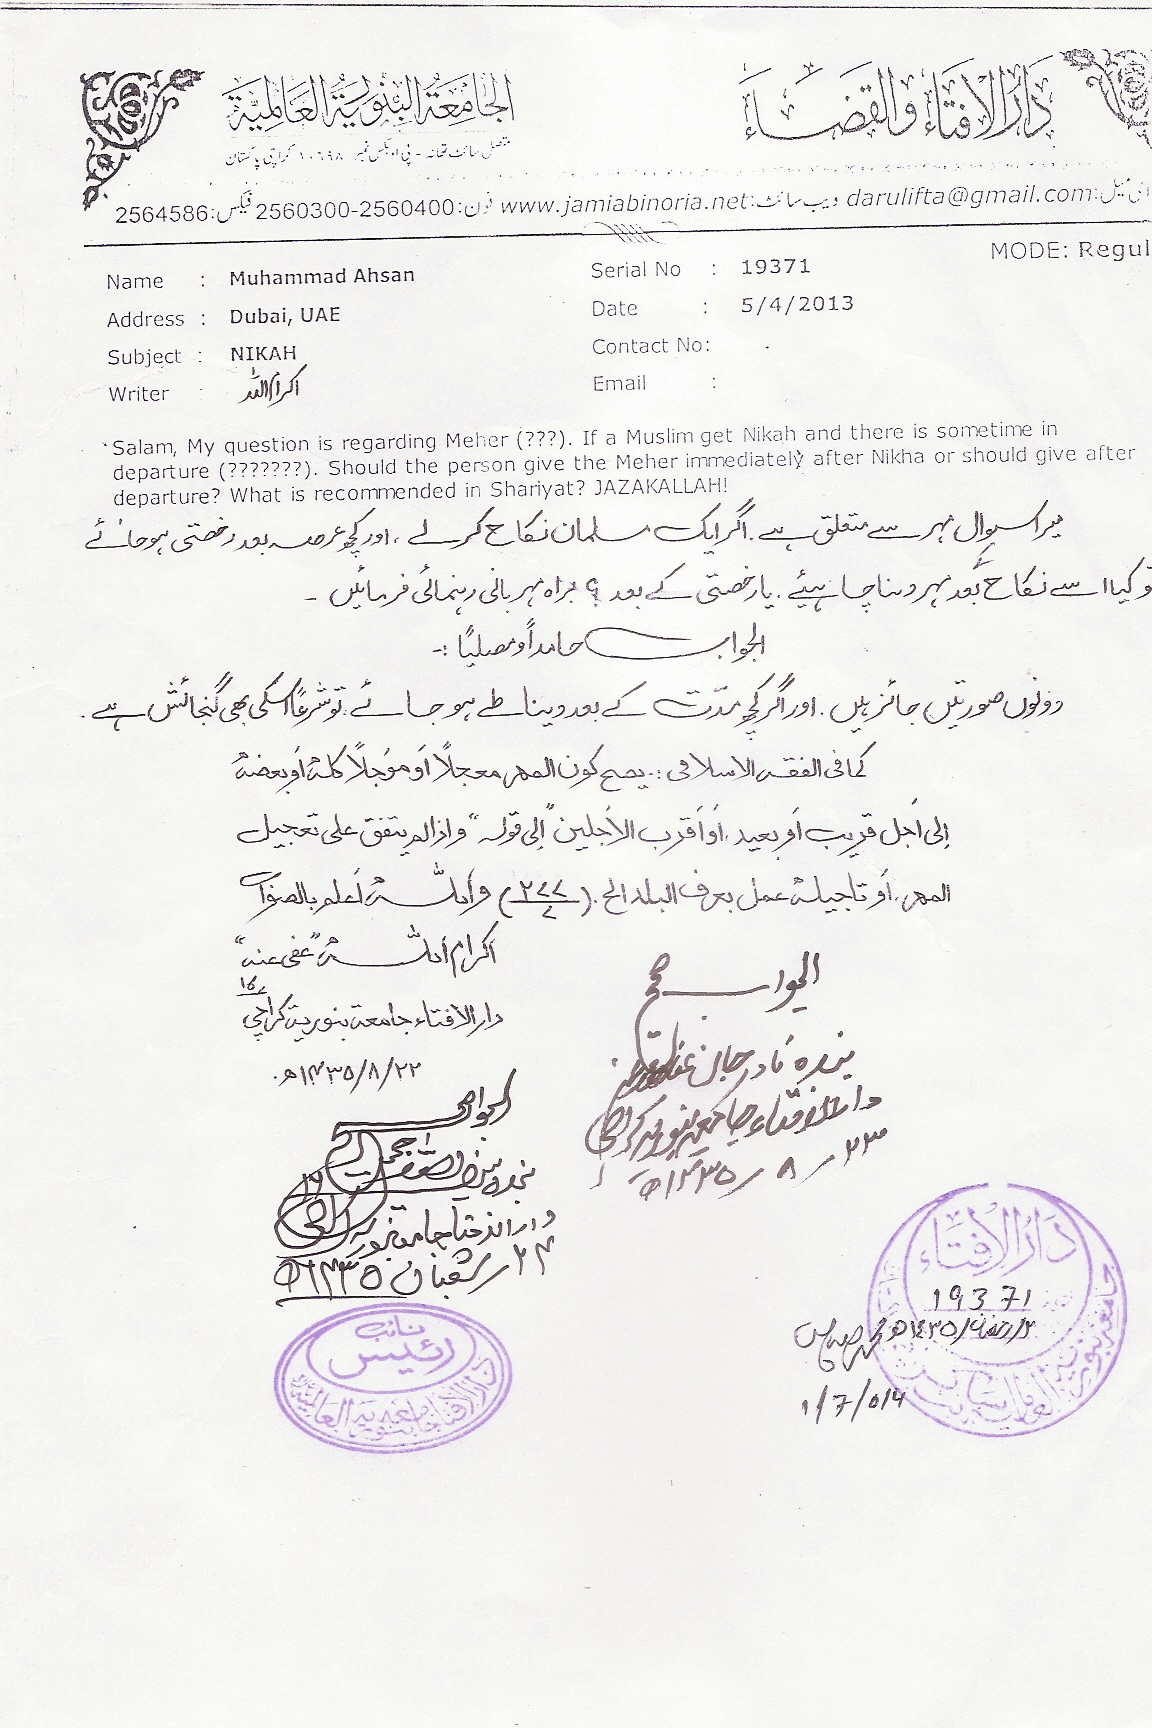 دَارُ الافتَاء وَالقَضَاء
الجَامعَةُ البِنَّورِيَّةُ العَالمِيَّة
متصل سائٹ تھانہ - پی او بکس نمبر ۱۰۶۹۸ کراچی پاکستان
ای میل:darulifta@gmail.com ویب سائٹ:www.jamiabinoria.net فون:2560300-2560400 فیکس:2564586
MODE: Regul
Name : Muhammad Ahsan Serial No : 19371
Address : Dubai, UAE Date : 5/4/2013
Subject : NIKAH Contact No:
Writer : اکرام اللہ Email :
Salam, My question is regarding Meher (???). If a Muslim get Nikah and there is sometime in
departure (???????). Should the person give the Meher immediately after Nikha or should give after
departure? What is recommended in Shariyat? JAZAKALLAH!
میرا سوال مہر سے متعلق ہے۔ اگر ایک مسلمان نکاح کرلے، اور کچھ عرصہ بعد رخصتی ہوجائے
تو کیا اسے نکاح کے بعد مہر دینا چاہیئے۔ یا رخصتی کے بعد؟ براہ مہربانی رہنمائی فرمائیں ۔
الجواب حامداً و مصلیاً :۔
دونوں صورتیں جائز ہیں۔ اور اگر کچھ مدّت کے بعد دینا طے ہوجائے۔ تو شرعاً اسکی بھی گنجائش ہے۔
کما فی الفقہ الاسلامی :۔ یصح کون المھر معجلاً أو مؤجلاً کلہٗ أو بعضہٗ
إلی أجل قریب أو بعید، أو أقرب الأجلین "إلی قولہ" و اذا لم یتفق علی تعجیل
المھر، أو تاجیلہٗ عمل بعرف البلد الخ۔ (۲۷۷/۷) و اللہ أعلم بالصواب
اکرام اللہ "عفی عنہ"
دار الافتاء جامعہ بنوریہ کراچی
۲۲/۸/۱۴۳۵ھ
الجواب صحیح
بندہ نادر جان
دار الافتاء جامعہ بنوریہ کراچی
۲۳/۸/۱۴۳۵ھ
الجواب صحیح
بندہ
دار الافتاء جامعہ بنوریہ کراچی
۲۴ شعبان ۱۴۳۵ھ
دَارُ الافتَاء
19371
1/7/014
نائب
رئیس
دار الافتاء جامعہ بنوریہ العالمیہ